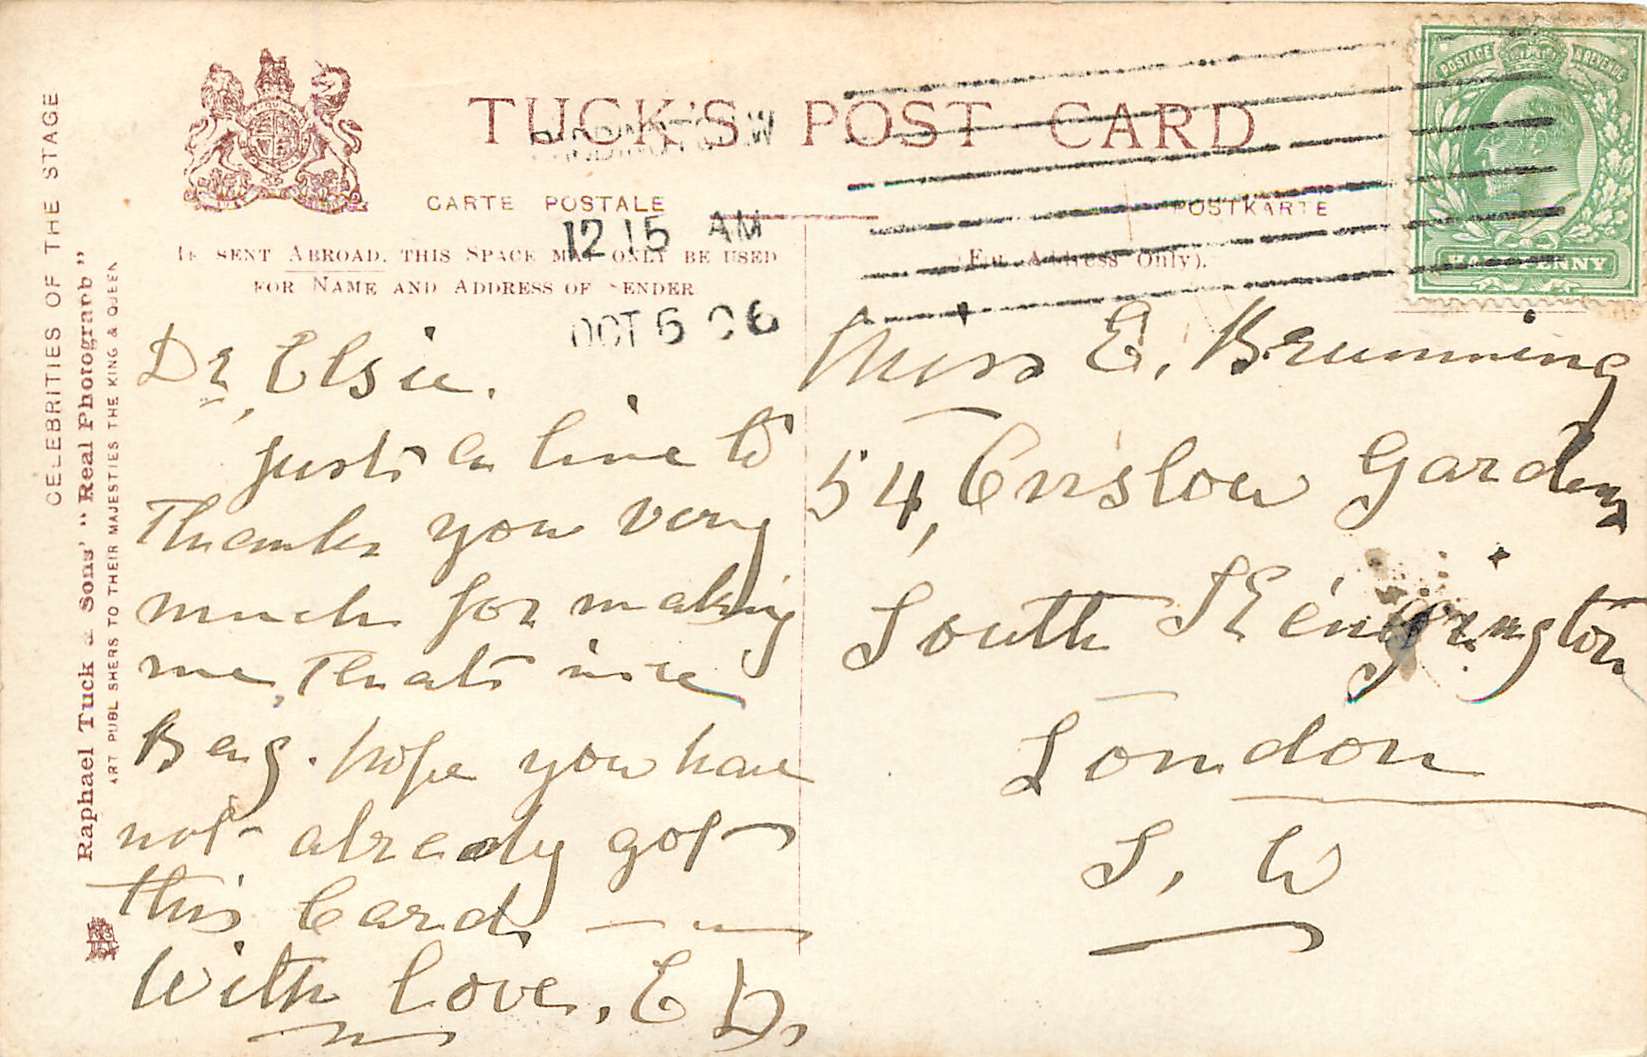 TUCK'S POST CARD
CARTE POSTALE
POSTKARTE
PADDINGTON. W
12 15 AM
OCT 6 06
IF SENT ABROAD, THIS SPACE MAY ONLY BE USED
FOR NAME AND ADDRESS OF SENDER
(For Address Only).
POSTAGE & REVENUE
HALFPENNY
CELEBRITIES OF THE STAGE
Raphael Tuck & Sons' "Real Photograph"
ART PUBLISHERS TO THEIR MAJESTIES THE KING & QUEEN
Dr Elsie.
just a line to
Thank you very
much for making
me, that nice
Bag. hope you have
not already got
this Card
With love. E D.
Miss E. Brumming
54, Onslow Gardens
South Kensington
London
S. W